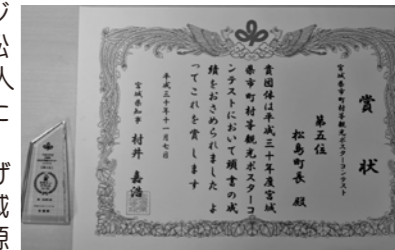 賞状
宮城県市町村等観光ポスターコンテスト
第五位
松島町長 殿
貴団体は平成三十年度宮城
県市町村等観光ポスターコ
ンテストにおいて頭書の成
績をおさめられました よ
つてこれを賞します
平成三十年十一月七日
宮城県知事 村井 嘉浩